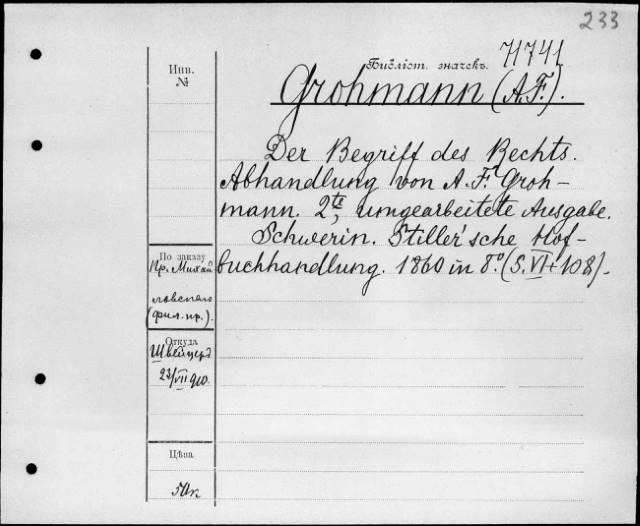 233
Библіот. значекъ.
71741
Инв.
№
Grohmann (A. F.).
Der Begriff des Rechts.
Abhandlung von A. F. Groh-
mann. 2te, umgearbeitete Ausgabe.
Schwerin. Stiller'sche Hof-
buchhandlung. 1860 in 8.° (S. VI + 108).
По заказу
Пр. Михай
ловскаго
(фил. пр.).
Откуда
Швейцеръ
23/VII 910.
Цѣна
50к